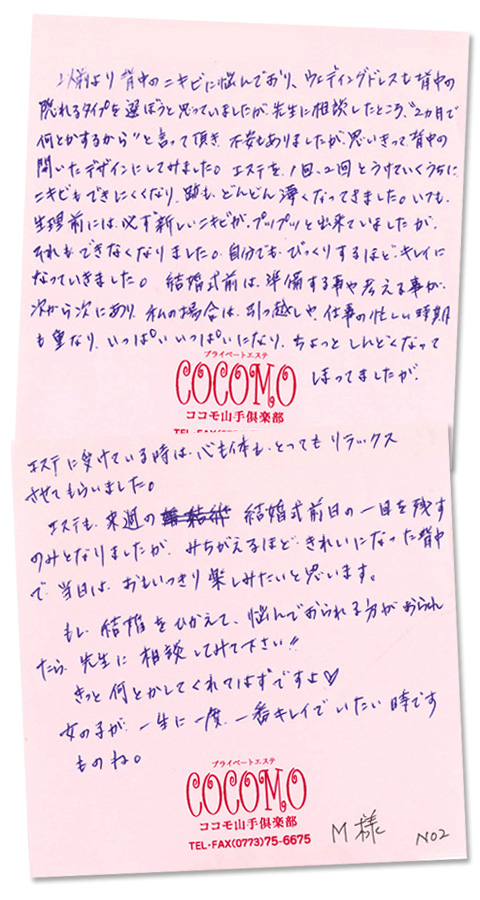 以前より背中のニキビに悩んでおり、ウェディングドレスも背中の
隠れるタイプを選ぼうと思っていましたが、先生に相談したところ、"2ヵ月で
何とかするから"と言って頂き、不安もありましたが、思いきって背中の
開いたデザインにしてみました。エステを、1回、2回とうけていくうちに
ニキビもできにくくなり、跡も、どんどん薄くなってきました。いつも、
生理前には、必ず新しいニキビが、プップッと出来ていましたが、
それもできなくなりました。自分でも、びっくりするほど、キレイに
なっていきました。結婚式前は、準備する事や考える事が、
次から次にあり、私の場合は、引っ越しや、仕事の忙しい時期
も重なり、いっぱいいっぱいになり、ちょっとしんどくなって
プライベートエステ
COCOMO
ココモ山手倶楽部
しまってましたが、
エステに受けている時は、心も体も、とってもリラックス
させてもらいました。
エステも、来週の結婚式前日の一回を残す
のみとなりましたが、みちがえるほど、きれいになった背中
で、当日は、おもいっきり楽しみたいと思います。
もし、結婚をひかえて、悩んでおられる方がおられ
たら、先生に相談してみて下さい!!
きっと何とかしてくれるはずですよ♡
女の子が、一生に一度、一番キレイでいたい時です
ものね。
プライベートエステ
COCOMO
ココモ山手倶楽部
TEL・FAX(0773)75-6675
M様
NO2